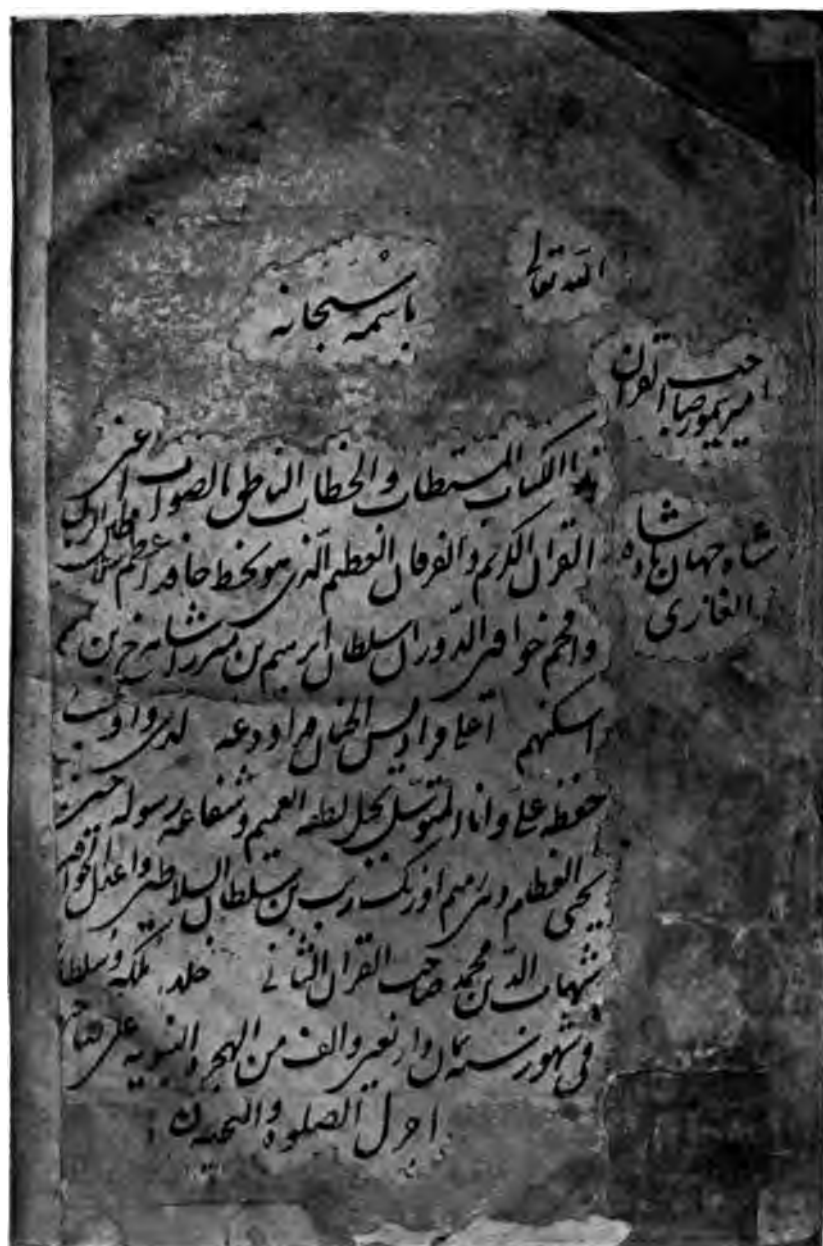 الله تعالى
باسمه سبحانه
امير تيمور صاحب القران
شاه جهان بادشاه
الغازى
هذا الكتاب المستطاب والخطاب الناطق بالصواب اعنى
القران الكريم والفرقان العظيم الذى هو بخط حافد اعظم سلاطين
وافخم خواقين الدوران سلطان ابرهيم بن ميرزا شاهرخ بن
اسكنهم اعلى فراديس الجنان
حفظه على وانا المتوسل بحبل لطفه العميم وشفاعة رسوله حين
يحيى العظام وهى رميم اورنك زيب بن سلطان السلاطين واعدل الخواقين
شهاب الدين محمد صاحب القران الثانى خلد ملكه وسلطانه
فى شهور سنه ثمان واربعين والف من الهجرة النبوية على صاحبها
اجزل الصلوة والتحية